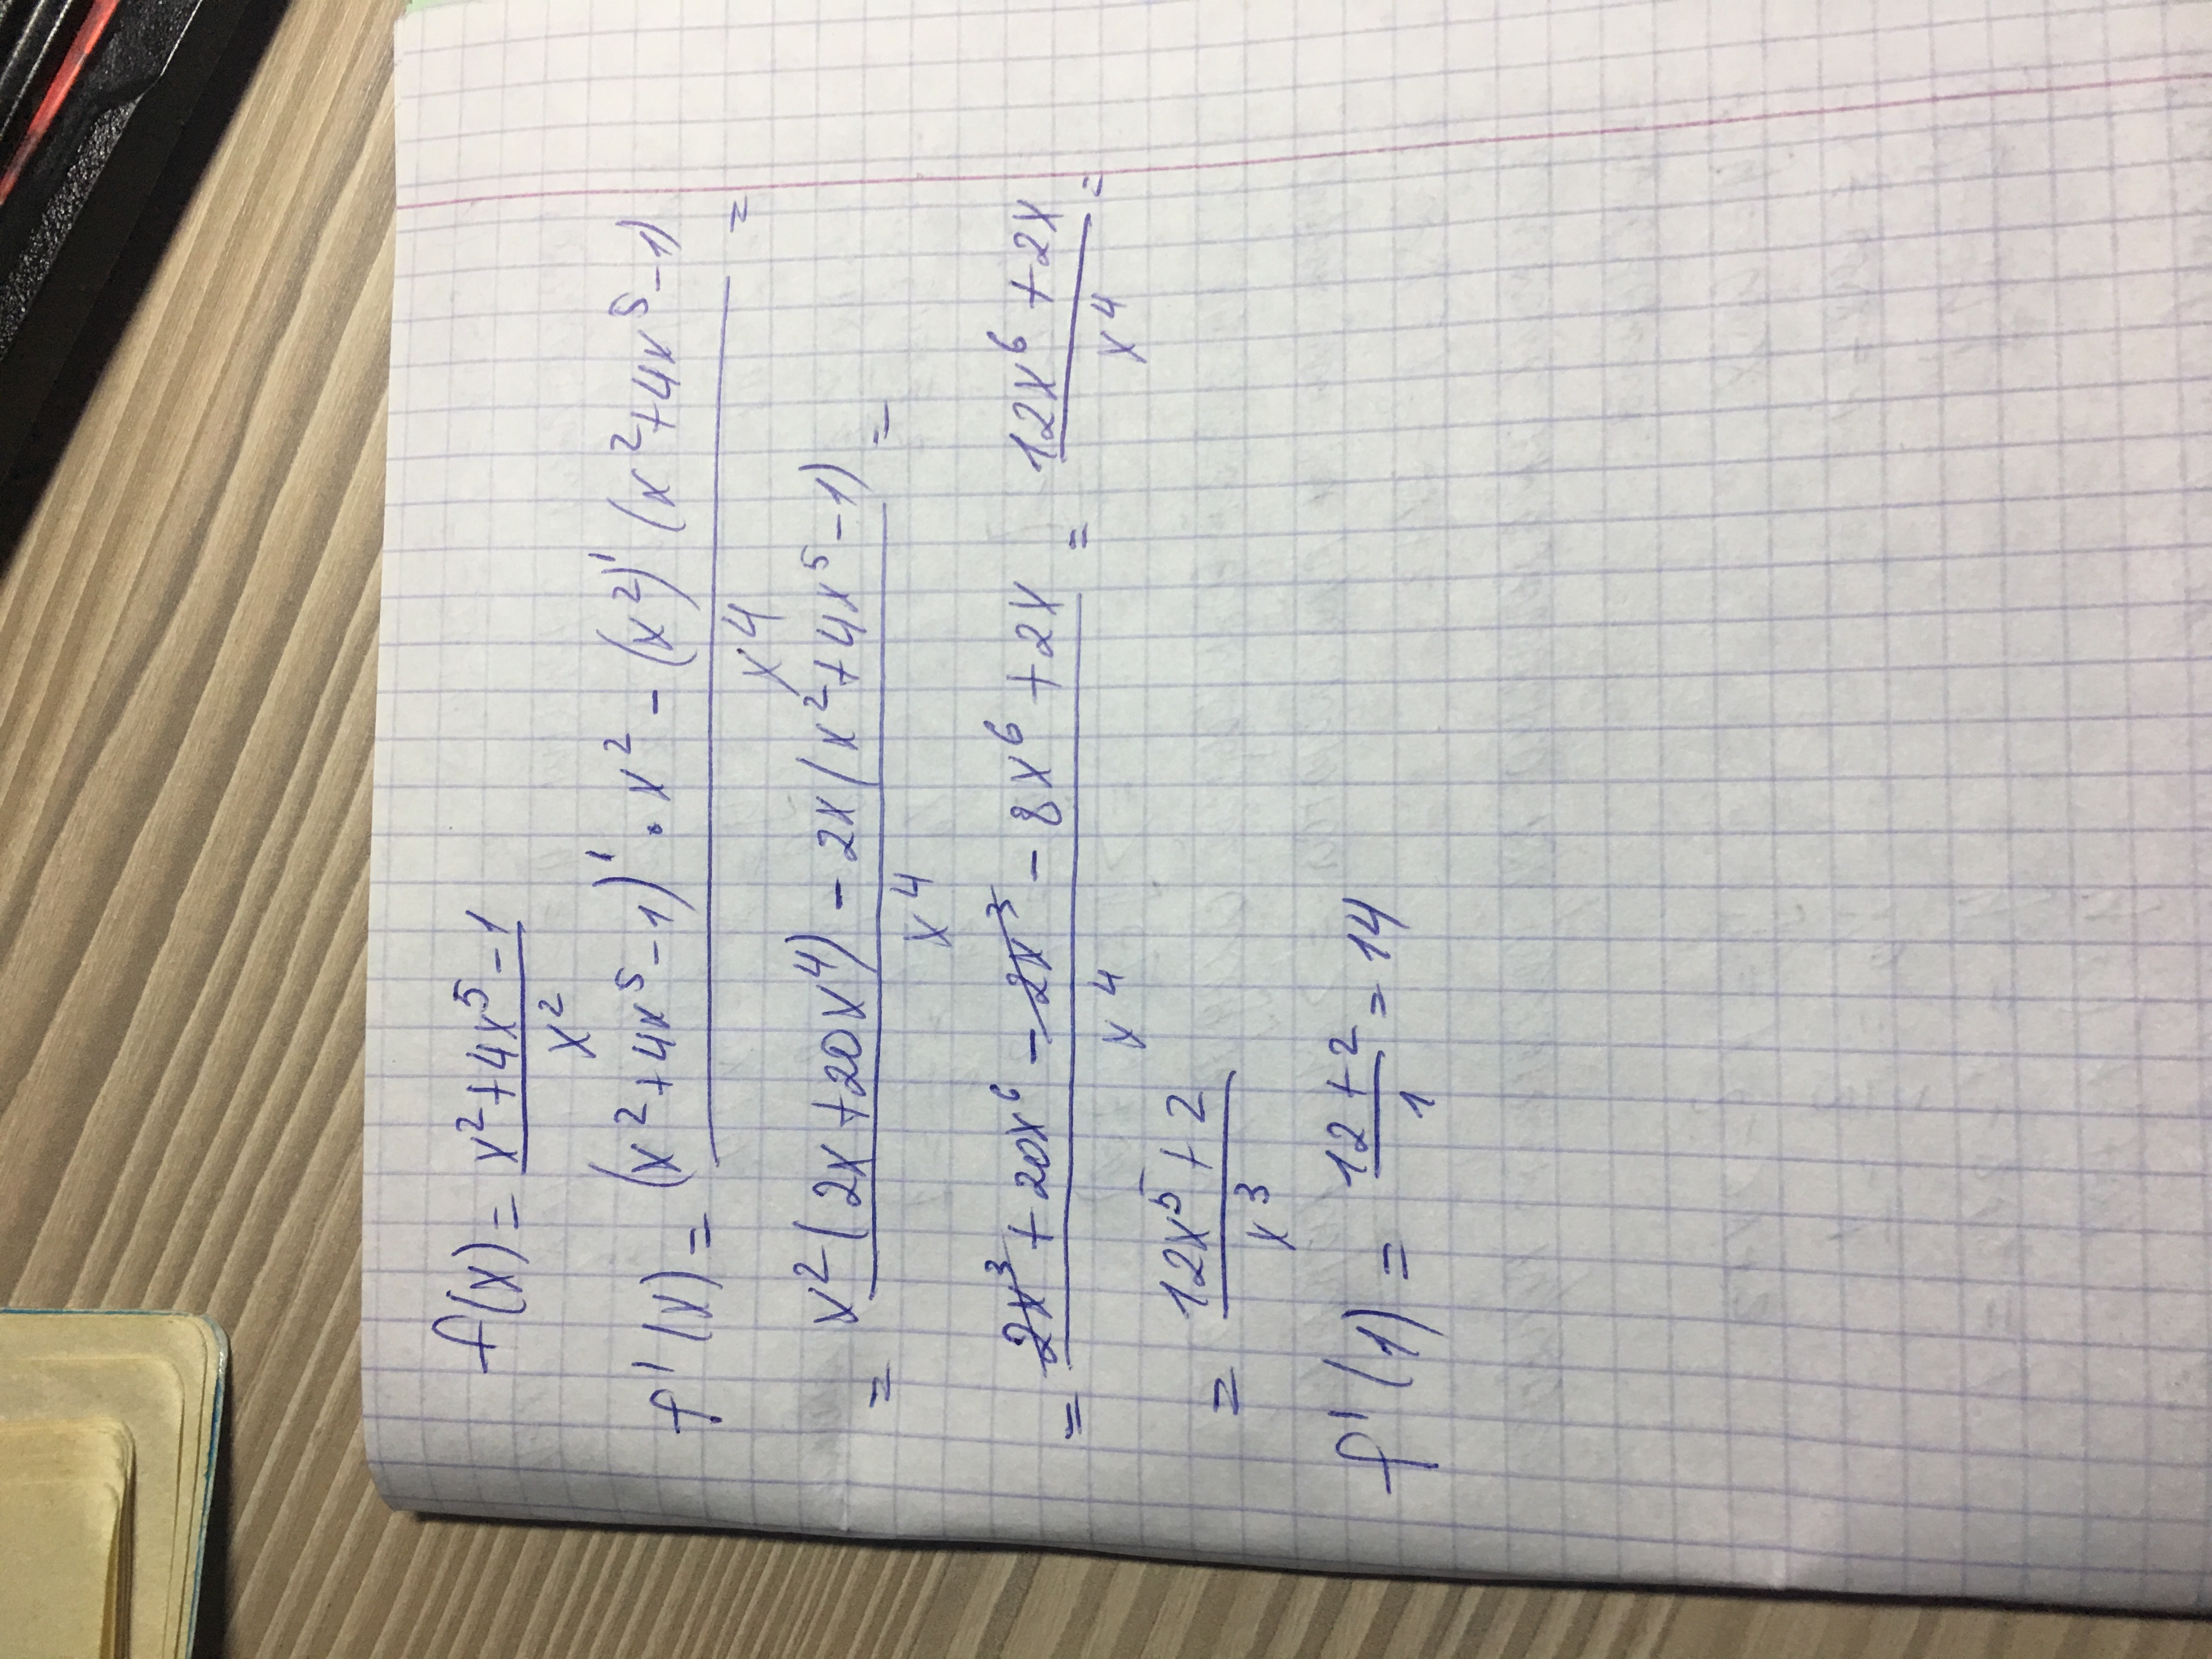 f(x) = (x² + 4x⁵ - 1) / x²
f'(x) = ((x² + 4x⁵ - 1)' · x² - (x²)' (x² + 4x⁵ - 1)) / x⁴ =
= (x² (2x + 20x⁴) - 2x (x² + 4x⁵ - 1)) / x⁴ =
= (2x³ + 20x⁶ - 2x³ - 8x⁶ + 2x) / x⁴ = (12x⁶ + 2x) / x⁴ =
= (12x⁵ + 2) / x³
f'(1) = (12 + 2) / 1 = 14